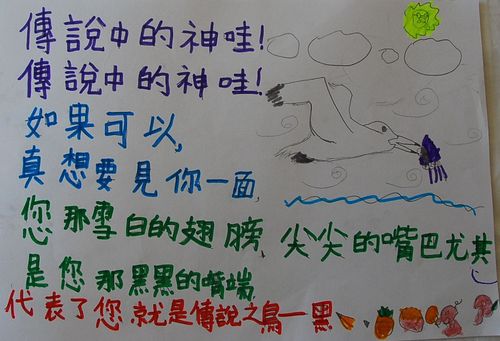 傳說中的神哇!
傳說中的神哇!
如果可以,
真想要見你一面,
您那雪白的翅膀, 尖尖的嘴巴尤其
是您那黑黑的嘴端,
代表了您就是傳說之鳥—黑